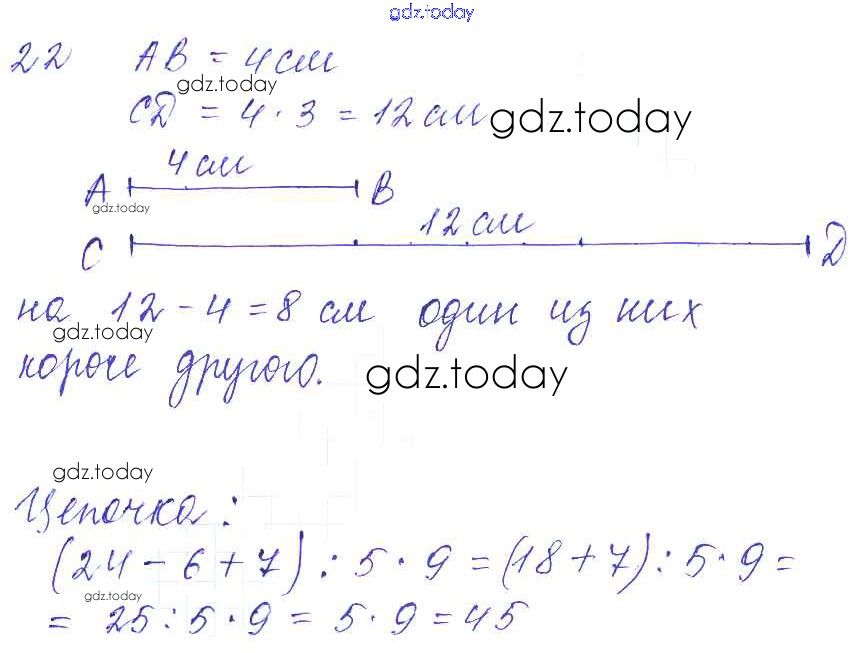 gdz.today
22 AB = 4 см
gdz.today
CD = 4 · 3 = 12 см gdz.today
4 см
A B
gdz.today
12 см
C D
на 12 - 4 = 8 см один из них
gdz.today
короче другого. gdz.today
gdz.today
Цепочка:
(24 - 6 + 7) : 5 · 9 = (18 + 7) : 5 · 9 =
gdz.today
= 25 : 5 · 9 = 5 · 9 = 45